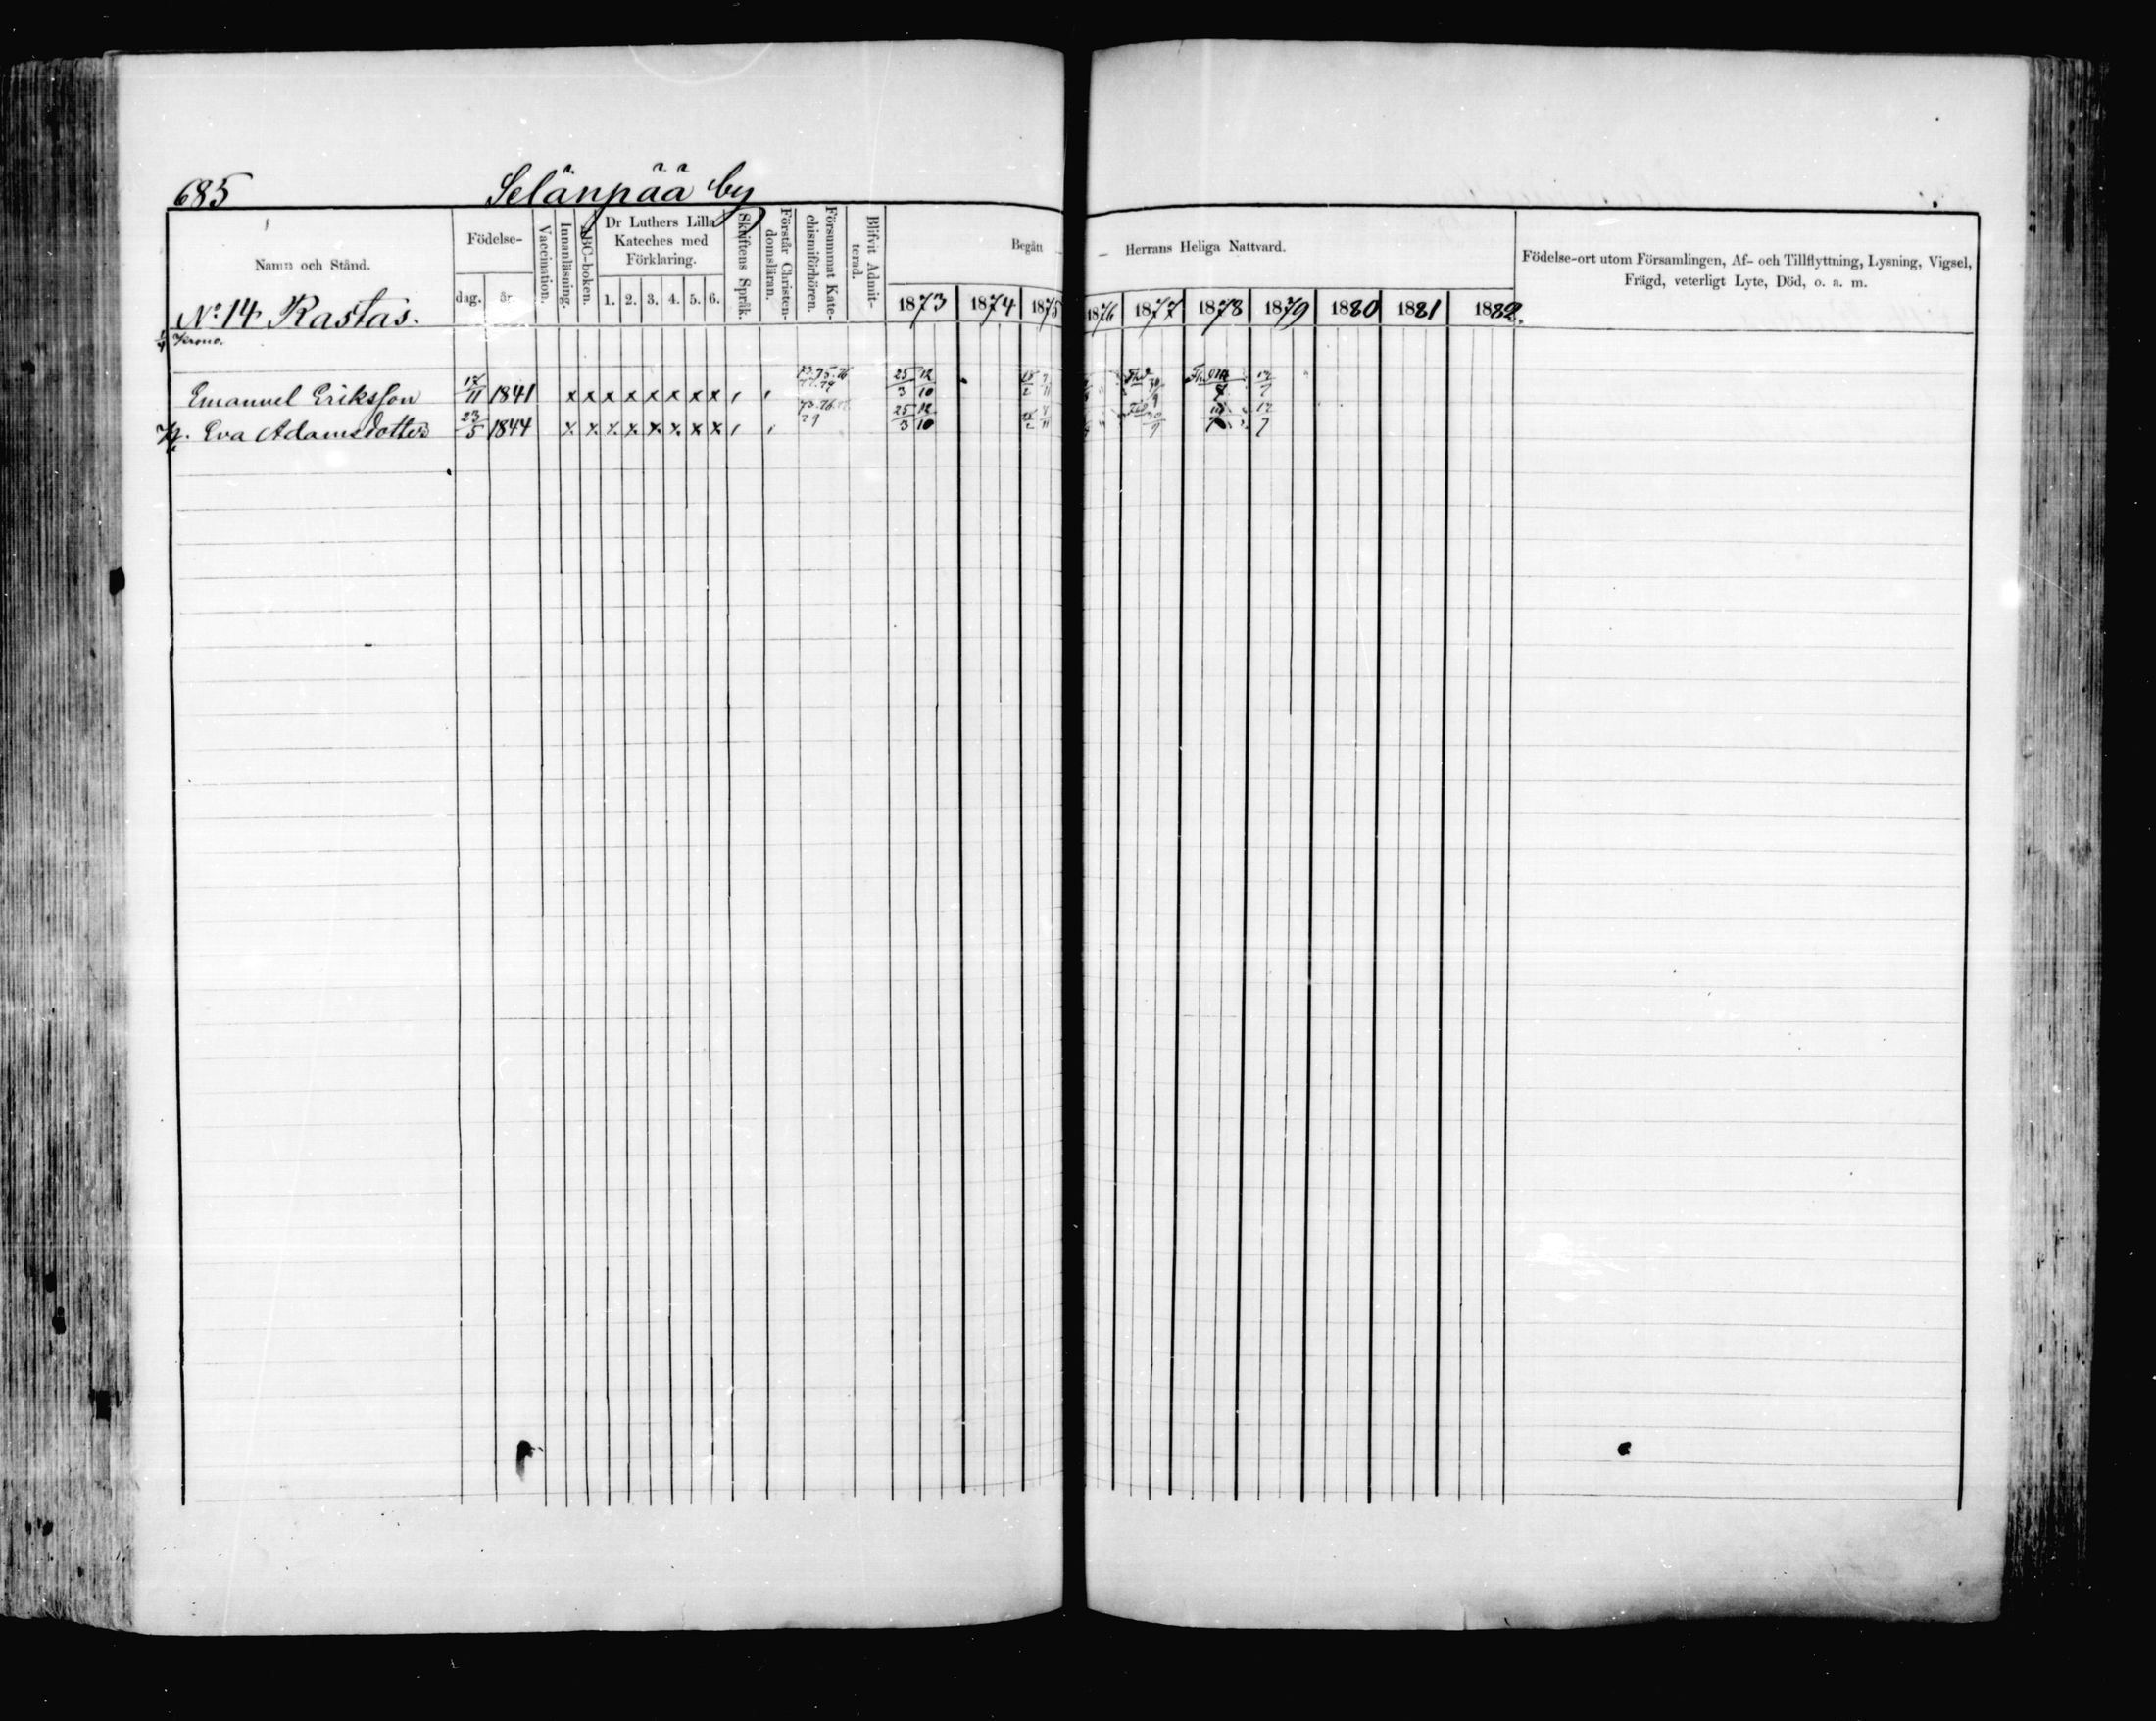 685
Selänpää by
Namn och Stånd.
Födelse-
dag.
år.
Vaccination.
Innanläsning.
ABC-boken.
Dr Luthers Lilla
Kateches med
Förklaring.
1. 2. 3. 4. 5. 6.
Skriftens Språk.
Förstår Christen-
domsläran.
Försummat Kate-
chismiförhören.
Blifvit Admit-
terad.
Begått — — Herrans Heliga Nattvard.
1873 1874 1875 1876 1877 1878 1879 1880 1881 1882.
Födelse-ort utom Församlingen, Af- och Tillflyttning, Lysning, Vigsel,
Frägd, veterligt Lyte, Död, o. a. m.
No 14 Rastas.
Krono.
Emanuel Eriksson 17/11 1841 x x x x x x x x 73. 75. 76 77. 79 25/3 12/10
Eva Adamsdotter 23/5 1844 x x x x x x x x 79 25/3 12/10